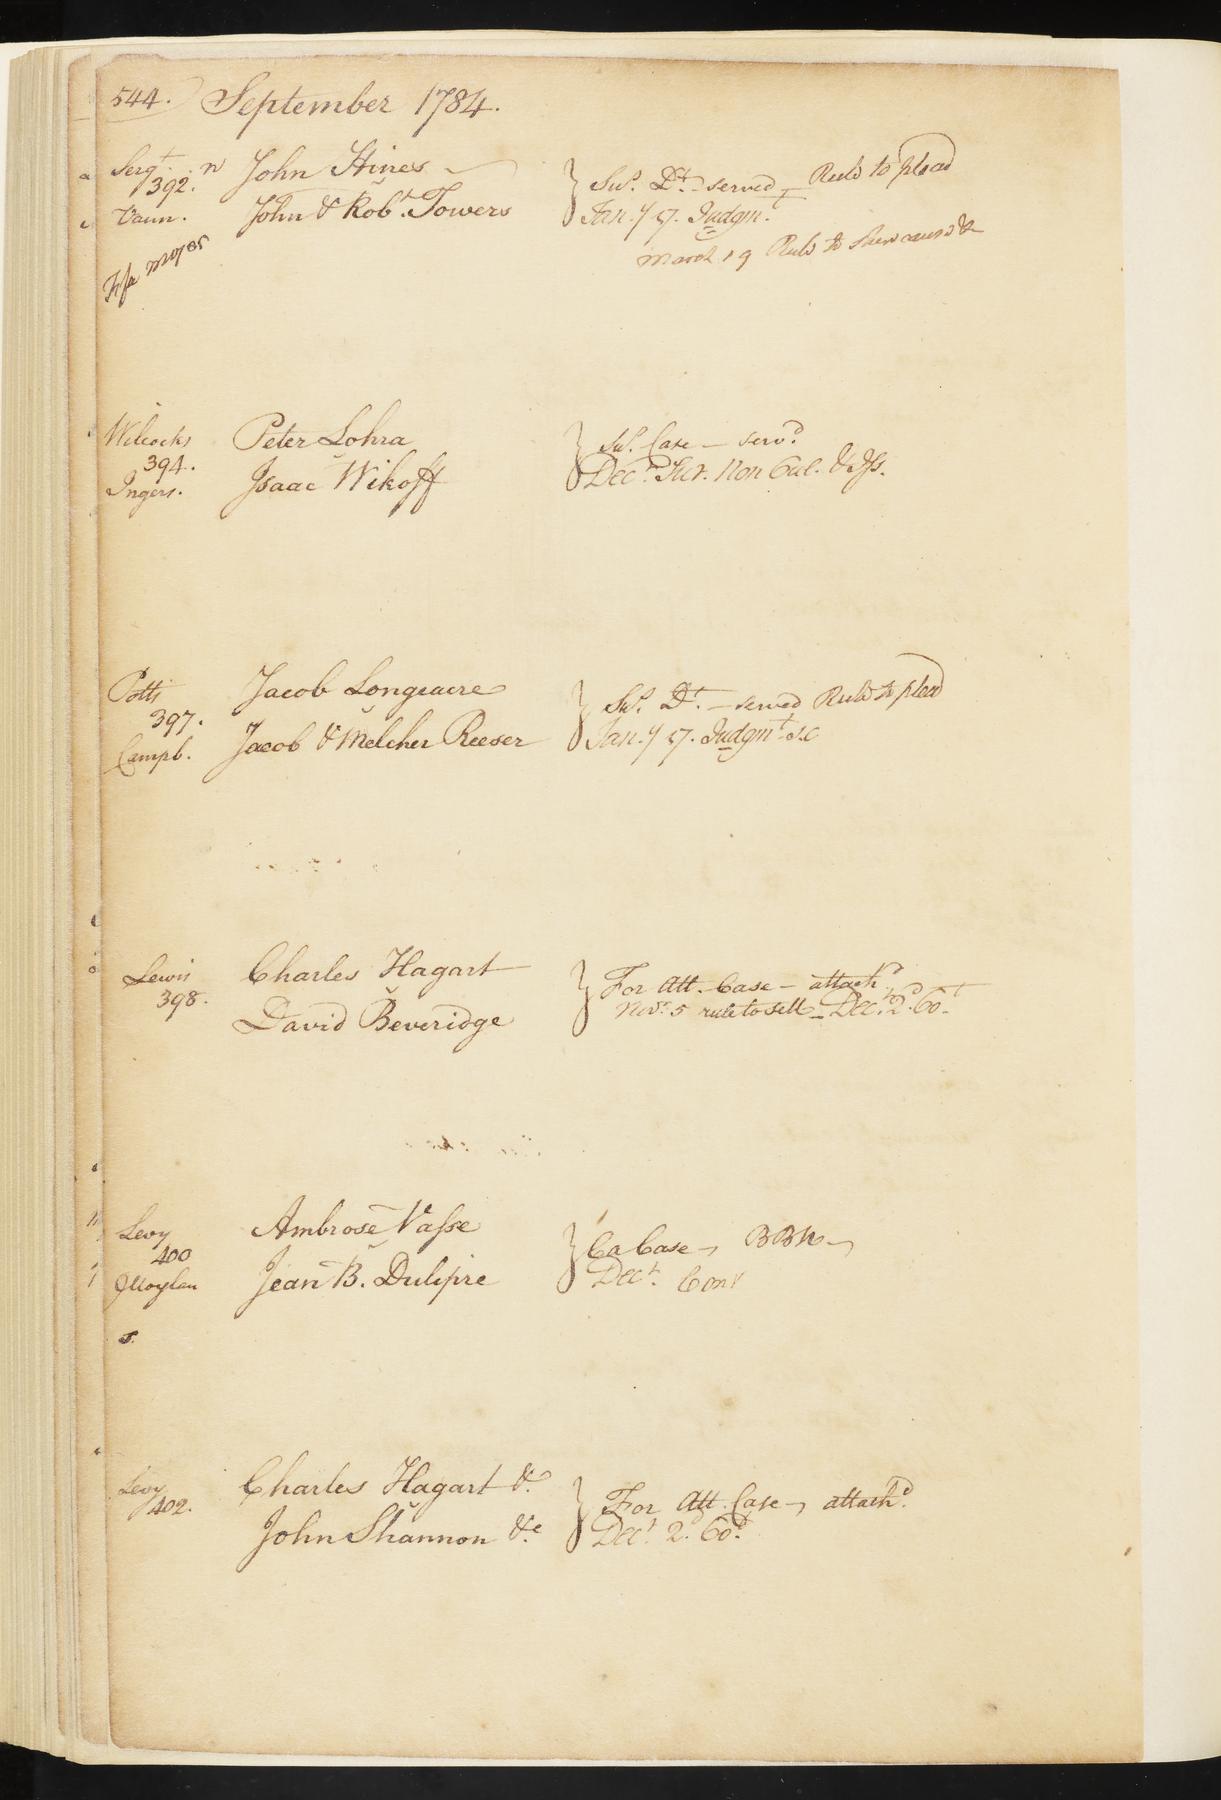 544. September 1784.
Sergt. n John Hines
392.
Vann. John & Robt. Towers
Sus. Dt. served Rule to plead
Jan.y 17. Judgmt.
March 19 Rule to shew cause &c
Fi fa
Wilcocks Peter Lohra
394.
Ingers. Isaac Wikoff
Sus. Case — servd.
Decr. Nar. Non Cul. & Iss.
Potts Jacob Longacre
397.
Campb. Jacob & Melcher Reeser
Sus. Dt. — served Rule to plead
Jan.y 17. Judgmt.
Lewis Charles Hagart
398.
David Beveridge
For Att. Case — attachd.
Novr. 5 rule to sell — Decr. 2d.
Levy Ambrose Vasse
400
JMoylan Jean B. Dulipre
Ca Case
Decr.
Levy Charles Hagart &c
402.
John Shannon &c
For Att. Case — attachd.
Decr. 2d.